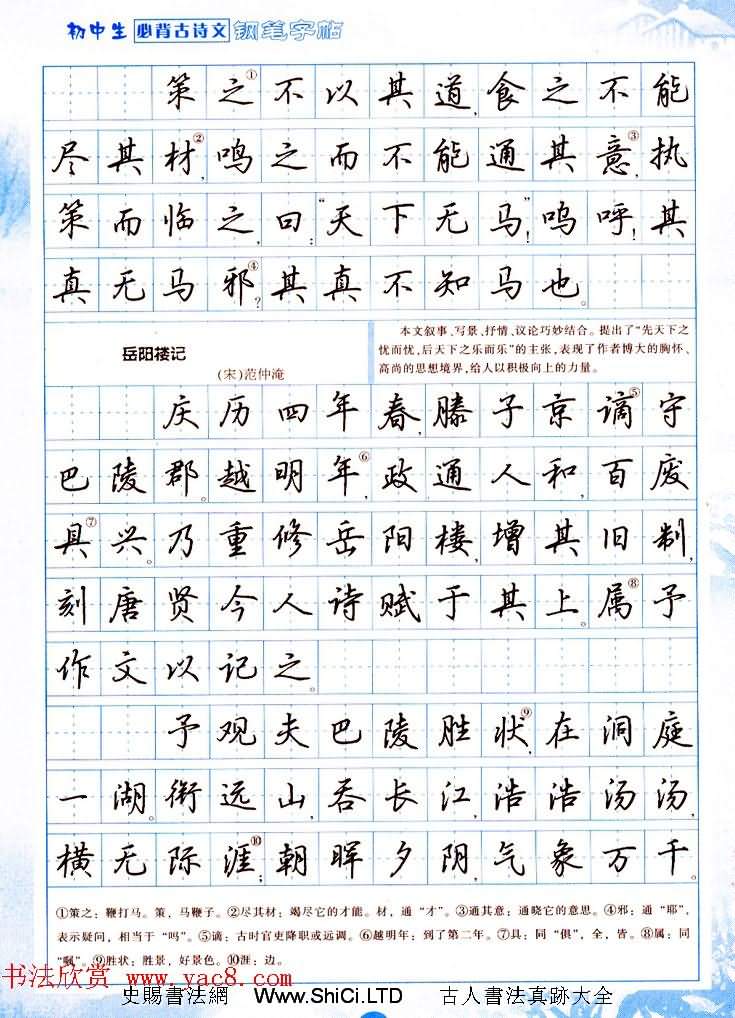 初中生 必背古诗文 钢笔字帖
策之①不以其道,食之不能
尽其材②,鸣之而不能通其意③,执
策而临之,曰:“天下无马”!呜呼!其
真无马邪④?其真不知马也。
岳阳楼记
(宋)范仲淹
本文叙事、写景、抒情、议论巧妙结合。提出了“先天下之
忧而忧,后天下之乐而乐”的主张,表现了作者博大的胸怀、
高尚的思想境界,给人以积极向上的力量。
庆历四年春,滕子京谪⑤守
巴陵郡。越明年⑥,政通人和,百废
具⑦兴。乃重修岳阳楼,增其旧制,
刻唐贤今人诗赋于其上。属⑧予
作文以记之。
予观夫巴陵胜状⑨,在洞庭
一湖。衔远山,吞长江,浩浩汤汤,
横无际涯⑩;朝晖夕阴,气象万千。
①策之:鞭打马。策,马鞭子。②尽其材:竭尽它的才能。材,通“才”。③通其意:通晓它的意思。④邪:通“耶”,
表示疑问,相当于“吗”。⑤谪:古时官吏降职或远调。⑥越明年:到了第二年。⑦具:同“俱”,全,皆。⑧属:同
“嘱”。⑨胜状:胜景,好景色。⑩涯:边。
书法欣赏 www.yac8.com
史賜書法網 Www.ShiCi.LTD 古人書法真跡大全